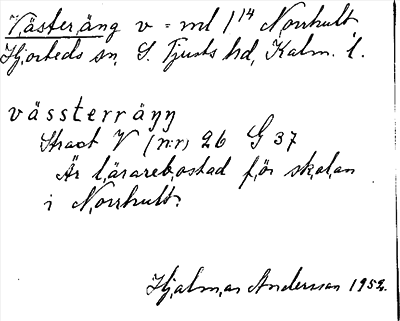 Västeräng v = ml 1/14 Norrhult
Hjorteds sn, S. Tjusts hd, Kalm. l.
vässterräŋŋ
Strax V (nr) 26 G 37
Är lärarebostad för skolan
i Norrhult.
Hjalmar Andersson 1952.